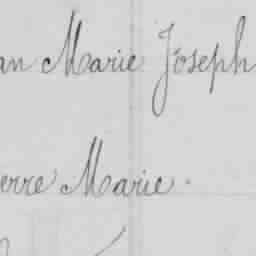 an Marie Joseph
erre Marie.